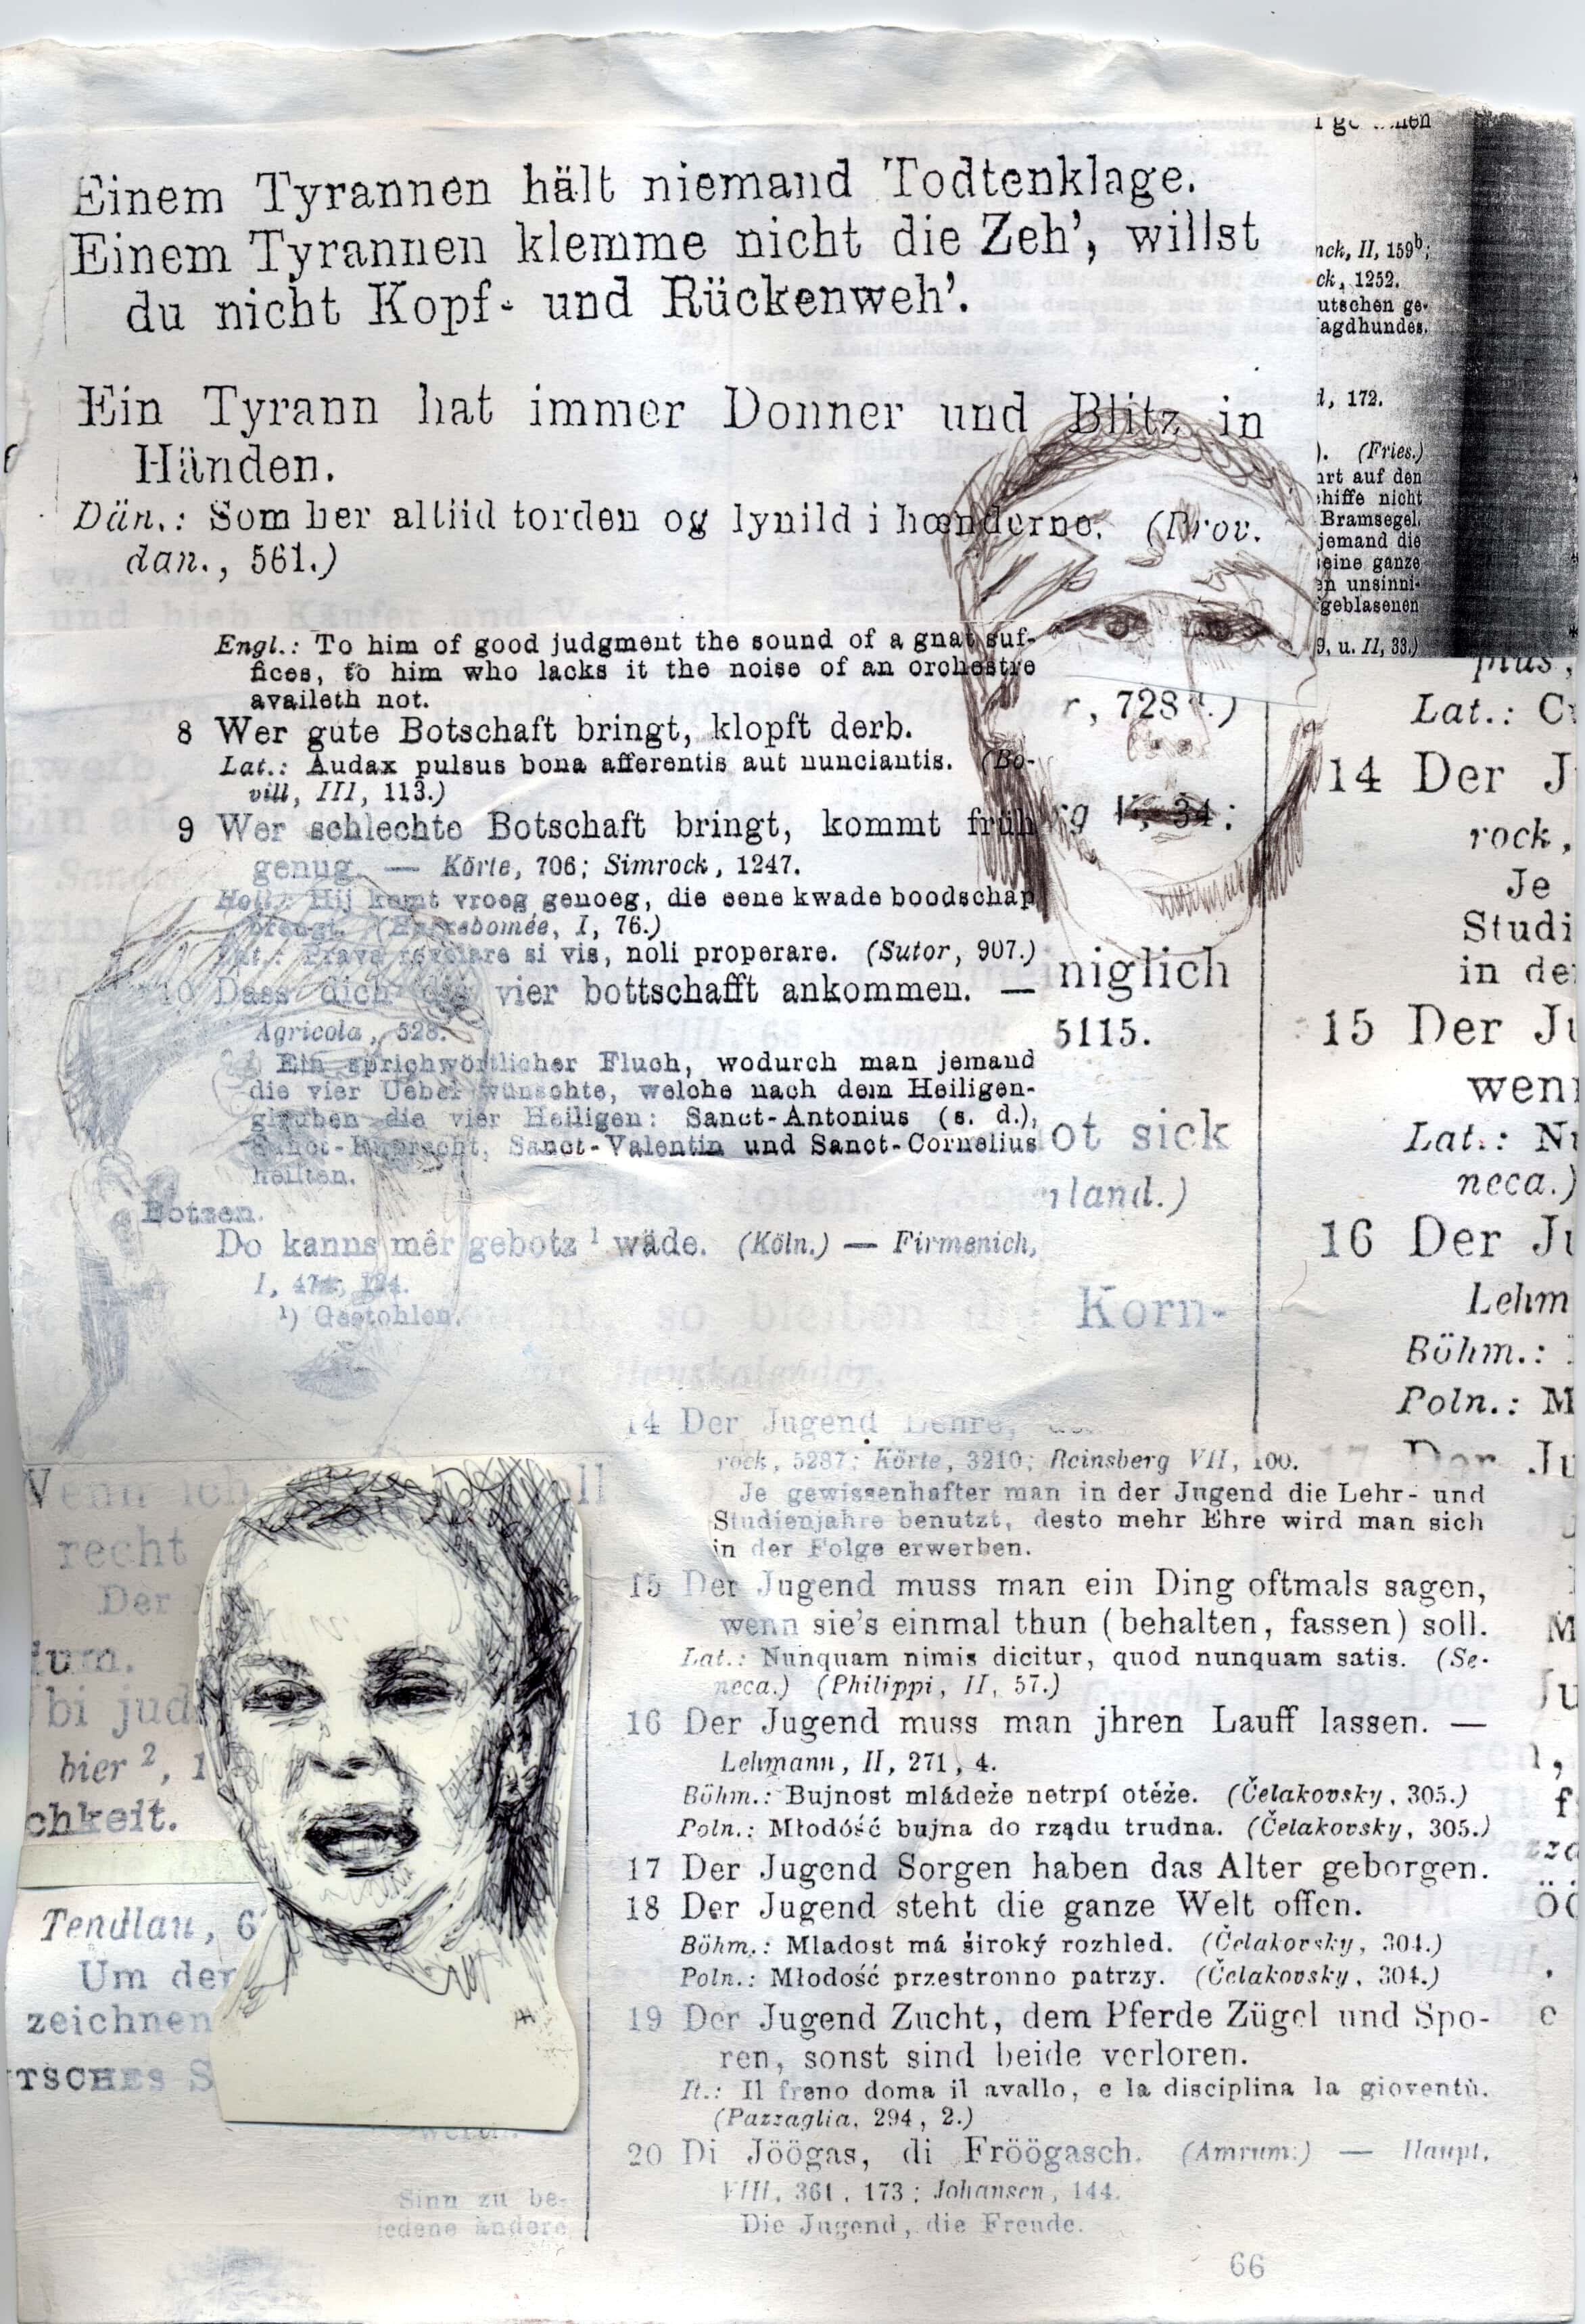 Einem Tyrannen hält niemand Todtenklage.
Einem Tyrannen klemme nicht die Zeh', willst
du nicht Kopf- und Rückenweh'.
Ein Tyrann hat immer Donner und Blitz in
Händen.
Dän.: Som her altiid torden og lynild i hœnderne. (Prov.
dan., 561.)
nck, II, 159b;
ck, 1252.
utschen ge-
agdhundes.
172.
(Fries.)
auf den
hiffe nicht
Bramsegel.
jemand die
eine ganze
unsinni-
geblasenen
9, u. II, 33.)
Engl.: To him of good judgment the sound of a gnat suf-
fices, to him who lacks it the noise of an orchestre
availeth not.
8 Wer gute Botschaft bringt, klopft derb.
Lat.: Audax pulsus bona afferentis aut nunciantis. (Bo-
vill, III, 113.)
9 Wer schlechte Botschaft bringt, kommt früh
genug. — Körte, 706; Simrock, 1247.
Holl.: Hij komt vroeg genoeg, die eene kwade boodschap
brengt. (Harrebomée, I, 76.)
Lat.: Prava revelare si vis, noli properare. (Sutor, 907.)
10 Dass dich die vier bottschafft ankommen. —
Agricola, 528.
Ein sprichwörtlicher Fluch, wodurch man jemand
die vier Uebel wünschte, welche nach dem Heiligen-
glauben die vier Heiligen: Sanct-Antonius (s. d.),
Sanct-Ruprecht, Sanct-Valentin und Sanct-Cornelius
heilten.
Botzen.
Do kanns mêr gebotz 1 wäde. (Köln.) — Firmenich,
I, 474, 194.
1) Gestohlen.
, 728
34;
niglich
5115.
ot sick
land.)
Korn-
Lat.:
14 Der J
rock,
Je
Studi
in de
15 Der Ju
wen
Lat.: Nu
neca.)
16 Der Ju
Lehm
Böhm.:
Poln.: M
17 Der Ju
14 Der Jugend Lehre,
rock, 5287; Körte, 3210; Reinsberg VII, 100.
Je gewissenhafter man in der Jugend die Lehr- und
Studienjahre benutzt, desto mehr Ehre wird man sich
in der Folge erwerben.
15 Der Jugend muss man ein Ding oftmals sagen,
wenn sie's einmal thun (behalten, fassen) soll.
Lat.: Nunquam nimis dicitur, quod nunquam satis. (Se-
neca.) (Philippi, II, 57.)
16 Der Jugend muss man jhren Lauff lassen. —
Lehmann, II, 271, 4.
Böhm.: Bujnost mládeže netrpí otěže. (Čelakovsky, 305.)
Poln.: Młodóść bujna do rządu trudna. (Čelakovsky, 305.)
17 Der Jugend Sorgen haben das Alter geborgen.
18 Der Jugend steht die ganze Welt offen.
Böhm.: Mladost má široký rozhled. (Čelakovsky, 304.)
Poln.: Młodość przestronno patrzy. (Čelakovsky, 304.)
19 Der Jugend Zucht, dem Pferde Zügel und Spo-
ren, sonst sind beide verloren.
It.: Il freno doma il avallo, e la disciplina la gioventù.
(Pazzaglia, 294, 2.)
20 Di Jöögas, di Fröögasch. (Amrum.) — Haupt,
VIII, 361, 173; Johansen, 144.
Die Jugend, die Freude.
Wenn ich
recht
Der
tum.
bi jud
bier 2, 1
chkeit.
Tendlau, 6
Um der
zeichnen
TSCHES S
Sinn zu be-
iedene andere
66